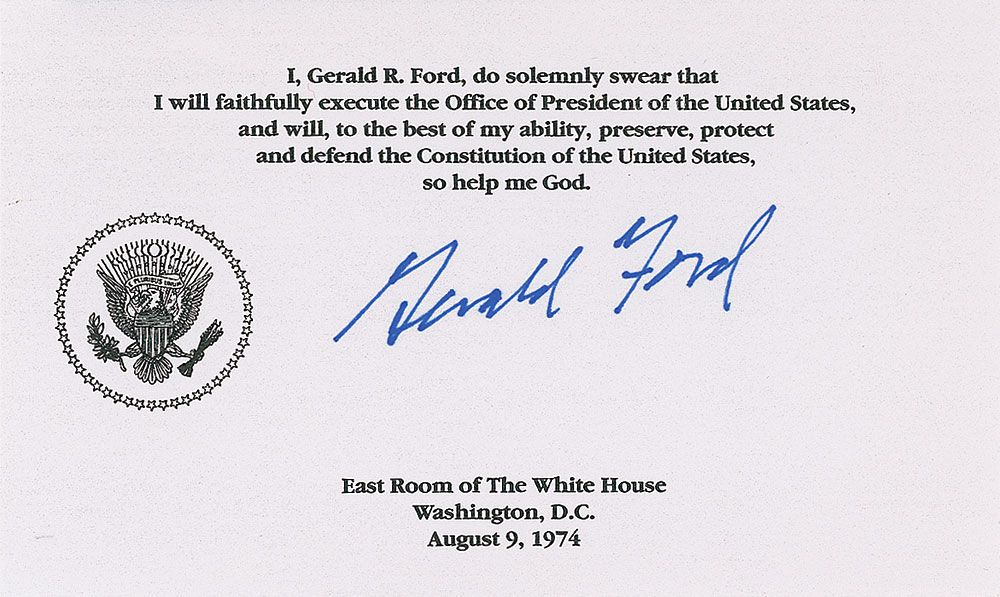 I, Gerald R. Ford, do solemnly swear that
I will faithfully execute the Office of President of the United States,
and will, to the best of my ability, preserve, protect
and defend the Constitution of the United States,
so help me God.
E PLURIBUS UNUM
Gerald Ford
East Room of The White House
Washington, D.C.
August 9, 1974